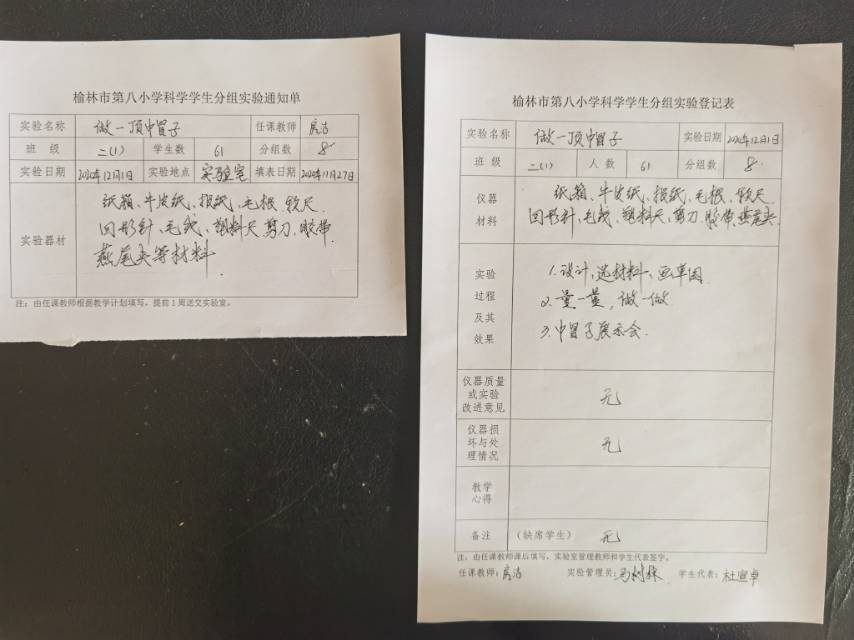 榆林市第八小学科学学生分组实验通知单
实验名称 做一顶帽子 任课教师
班 级 二(1) 学生数 61 分组数 8
实验日期 2020年12月1日 实验地点 实验室 填表日期 2020年11月27日
实验器材
纸箱、牛皮纸、报纸、毛根、软尺
回形针、毛线、塑料尺 剪刀、胶带
燕尾夹等材料
注：由任课教师根据教学计划填写，提前1周送交实验室。
榆林市第八小学科学学生分组实验登记表
实验名称 做一顶帽子 实验日期 2020年12月1日
班 级 二(1) 人 数 61 分组数 8
仪器
材料
纸箱、牛皮纸、报纸、毛根、软尺
回形针、毛线、塑料尺、剪刀、胶带、燕尾夹
实验
过程
及其
效果
1.设计，选材料、画草图
2.量一量，做一做
3.帽子展示会.
仪器质量
或实验
改进意见
无
仪器损
坏与处
理情况
无
教学
心得
备注 (缺席学生) 无
注：由任课教师课后填写，实验室管理教师和学生代表签字。
任课教师： 实验管理员：马树林 学生代表：杜宣卓